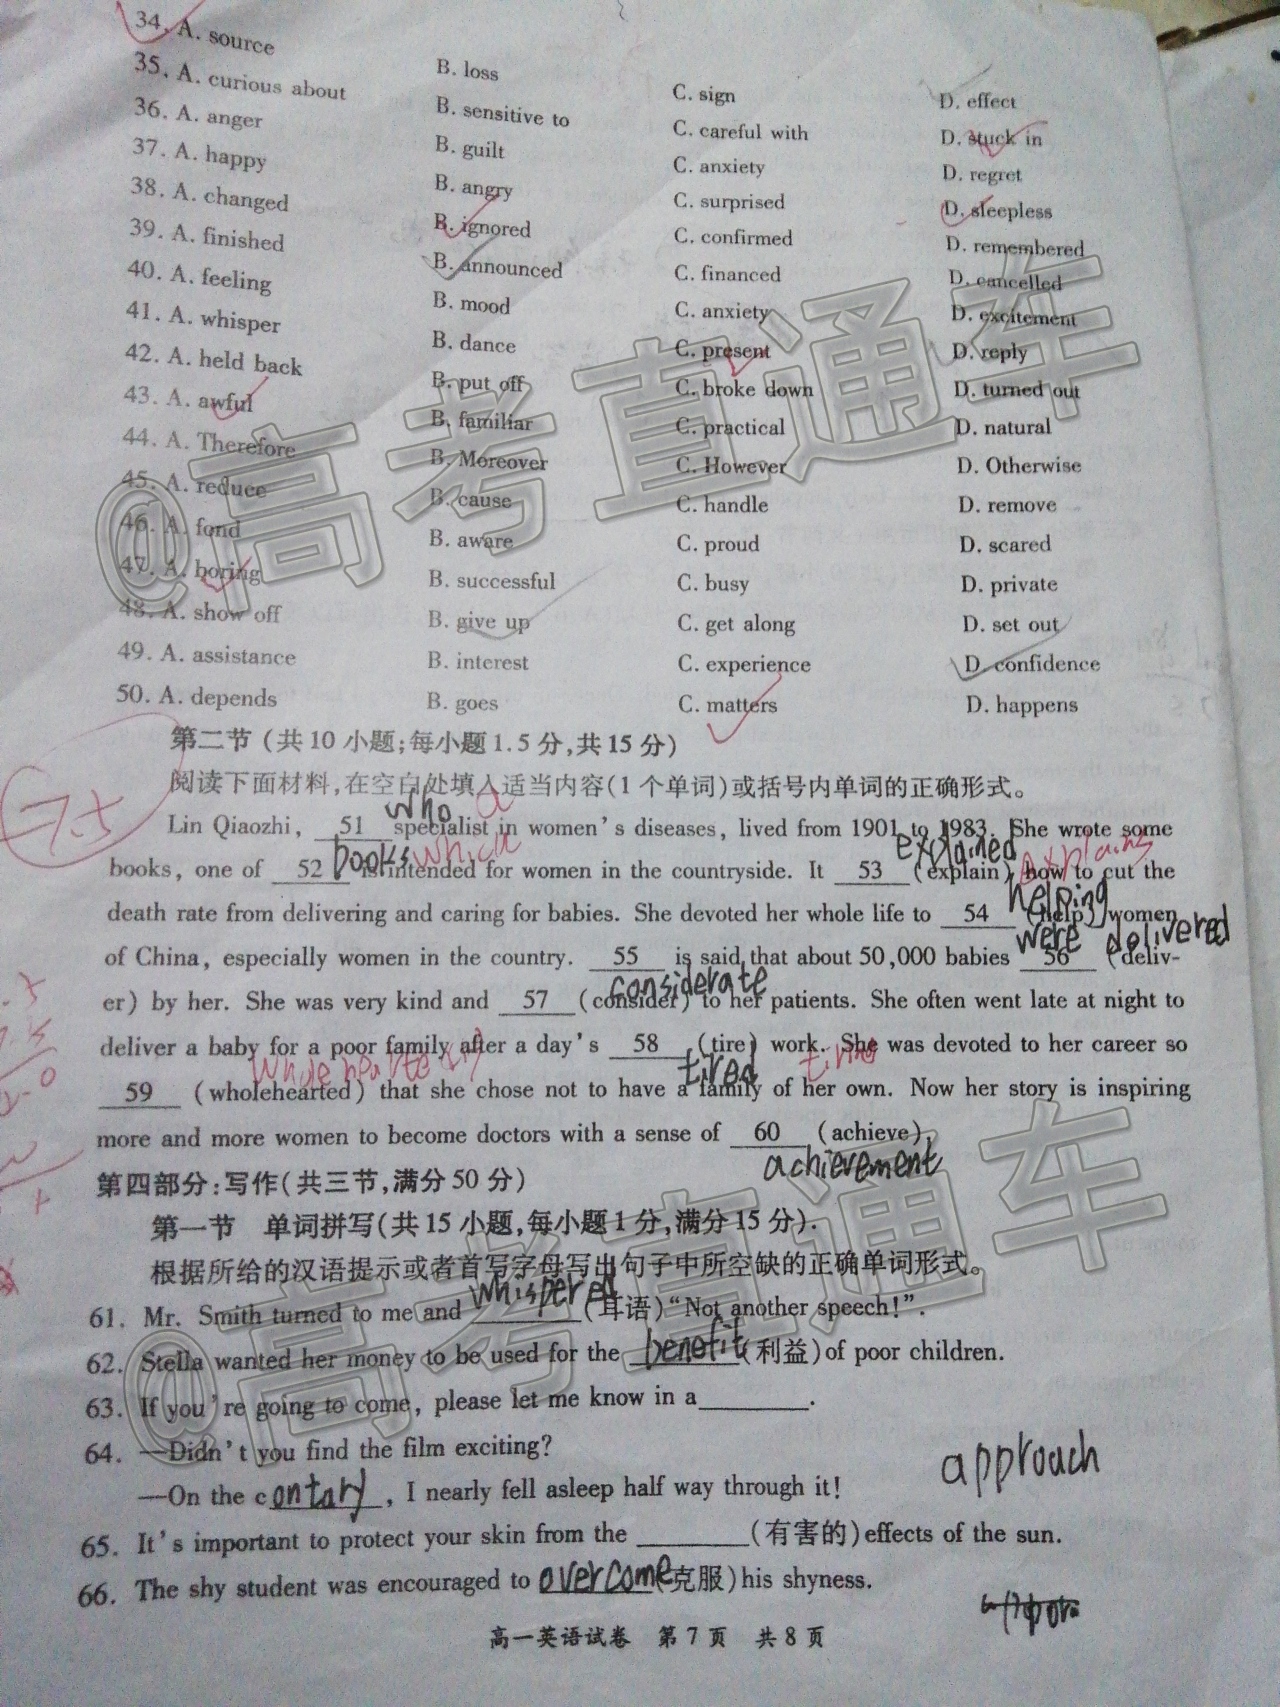 34. A. source B. loss C. sign D. effect
35. A. curious about B. sensitive to C. careful with D. stuck in
36. A. anger B. guilt C. anxiety D. regret
37. A. happy B. angry C. surprised D. sleepless
38. A. changed B. ignored C. confirmed D. remembered
39. A. finished B. announced C. financed D. cancelled
40. A. feeling B. mood C. anxiety D. excitement
41. A. whisper B. dance C. present D. reply
42. A. held back B. put off C. broke down D. turned out
43. A. awful B. familiar C. practical D. natural
44. A. Therefore B. Moreover C. However D. Otherwise
45. A. reduce B. cause C. handle D. remove
46. A. fond B. aware C. proud D. scared
47. A. boring B. successful C. busy D. private
48. A. show off B. give up C. get along D. set out
49. A. assistance B. interest C. experience D. confidence
50. A. depends B. goes C. matters D. happens
@高考直通车
第二节 (共10小题;每小题1.5分,共15分)
-7.5
阅读下面材料,在空白处填入适当内容(1个单词)或括号内单词的正确形式。
who a
Lin Qiaozhi, 51 specialist in women's diseases, lived from 1901 to 1983. She wrote some
books which explained explains
books, one of 52 is intended for women in the countryside. It 53 (explain) how to cut the
helping
death rate from delivering and caring for babies. She devoted her whole life to 54 (help) women
were delivered
of China, especially women in the country. 55 is said that about 50,000 babies 56 (deliv-
considerate
er) by her. She was very kind and 57 (consider) to her patients. She often went late at night to
deliver a baby for a poor family after a day's 58 (tire) work. She was devoted to her career so
tired
59 (wholehearted) that she chose not to have a family of her own. Now her story is inspiring
more and more women to become doctors with a sense of 60 (achieve).
achievement
第四部分:写作(共三节,满分50分)
第一节 单词拼写(共15小题,每小题1分,满分15分).
根据所给的汉语提示或者首写字母写出句子中所空缺的正确单词形式。
61. Mr. Smith turned to me and whispered (耳语)"Not another speech!".
62. Stella wanted her money to be used for the benefit (利益)of poor children.
63. If you're going to come, please let me know in a________.
64. —Didn't you find the film exciting?
approach
—On the contary, I nearly fell asleep half way through it!
65. It's important to protect your skin from the ________(有害的)effects of the sun.
66. The shy student was encouraged to overcome (克服)his shyness.
@高考直通车
高一英语试卷 第7页 共8页